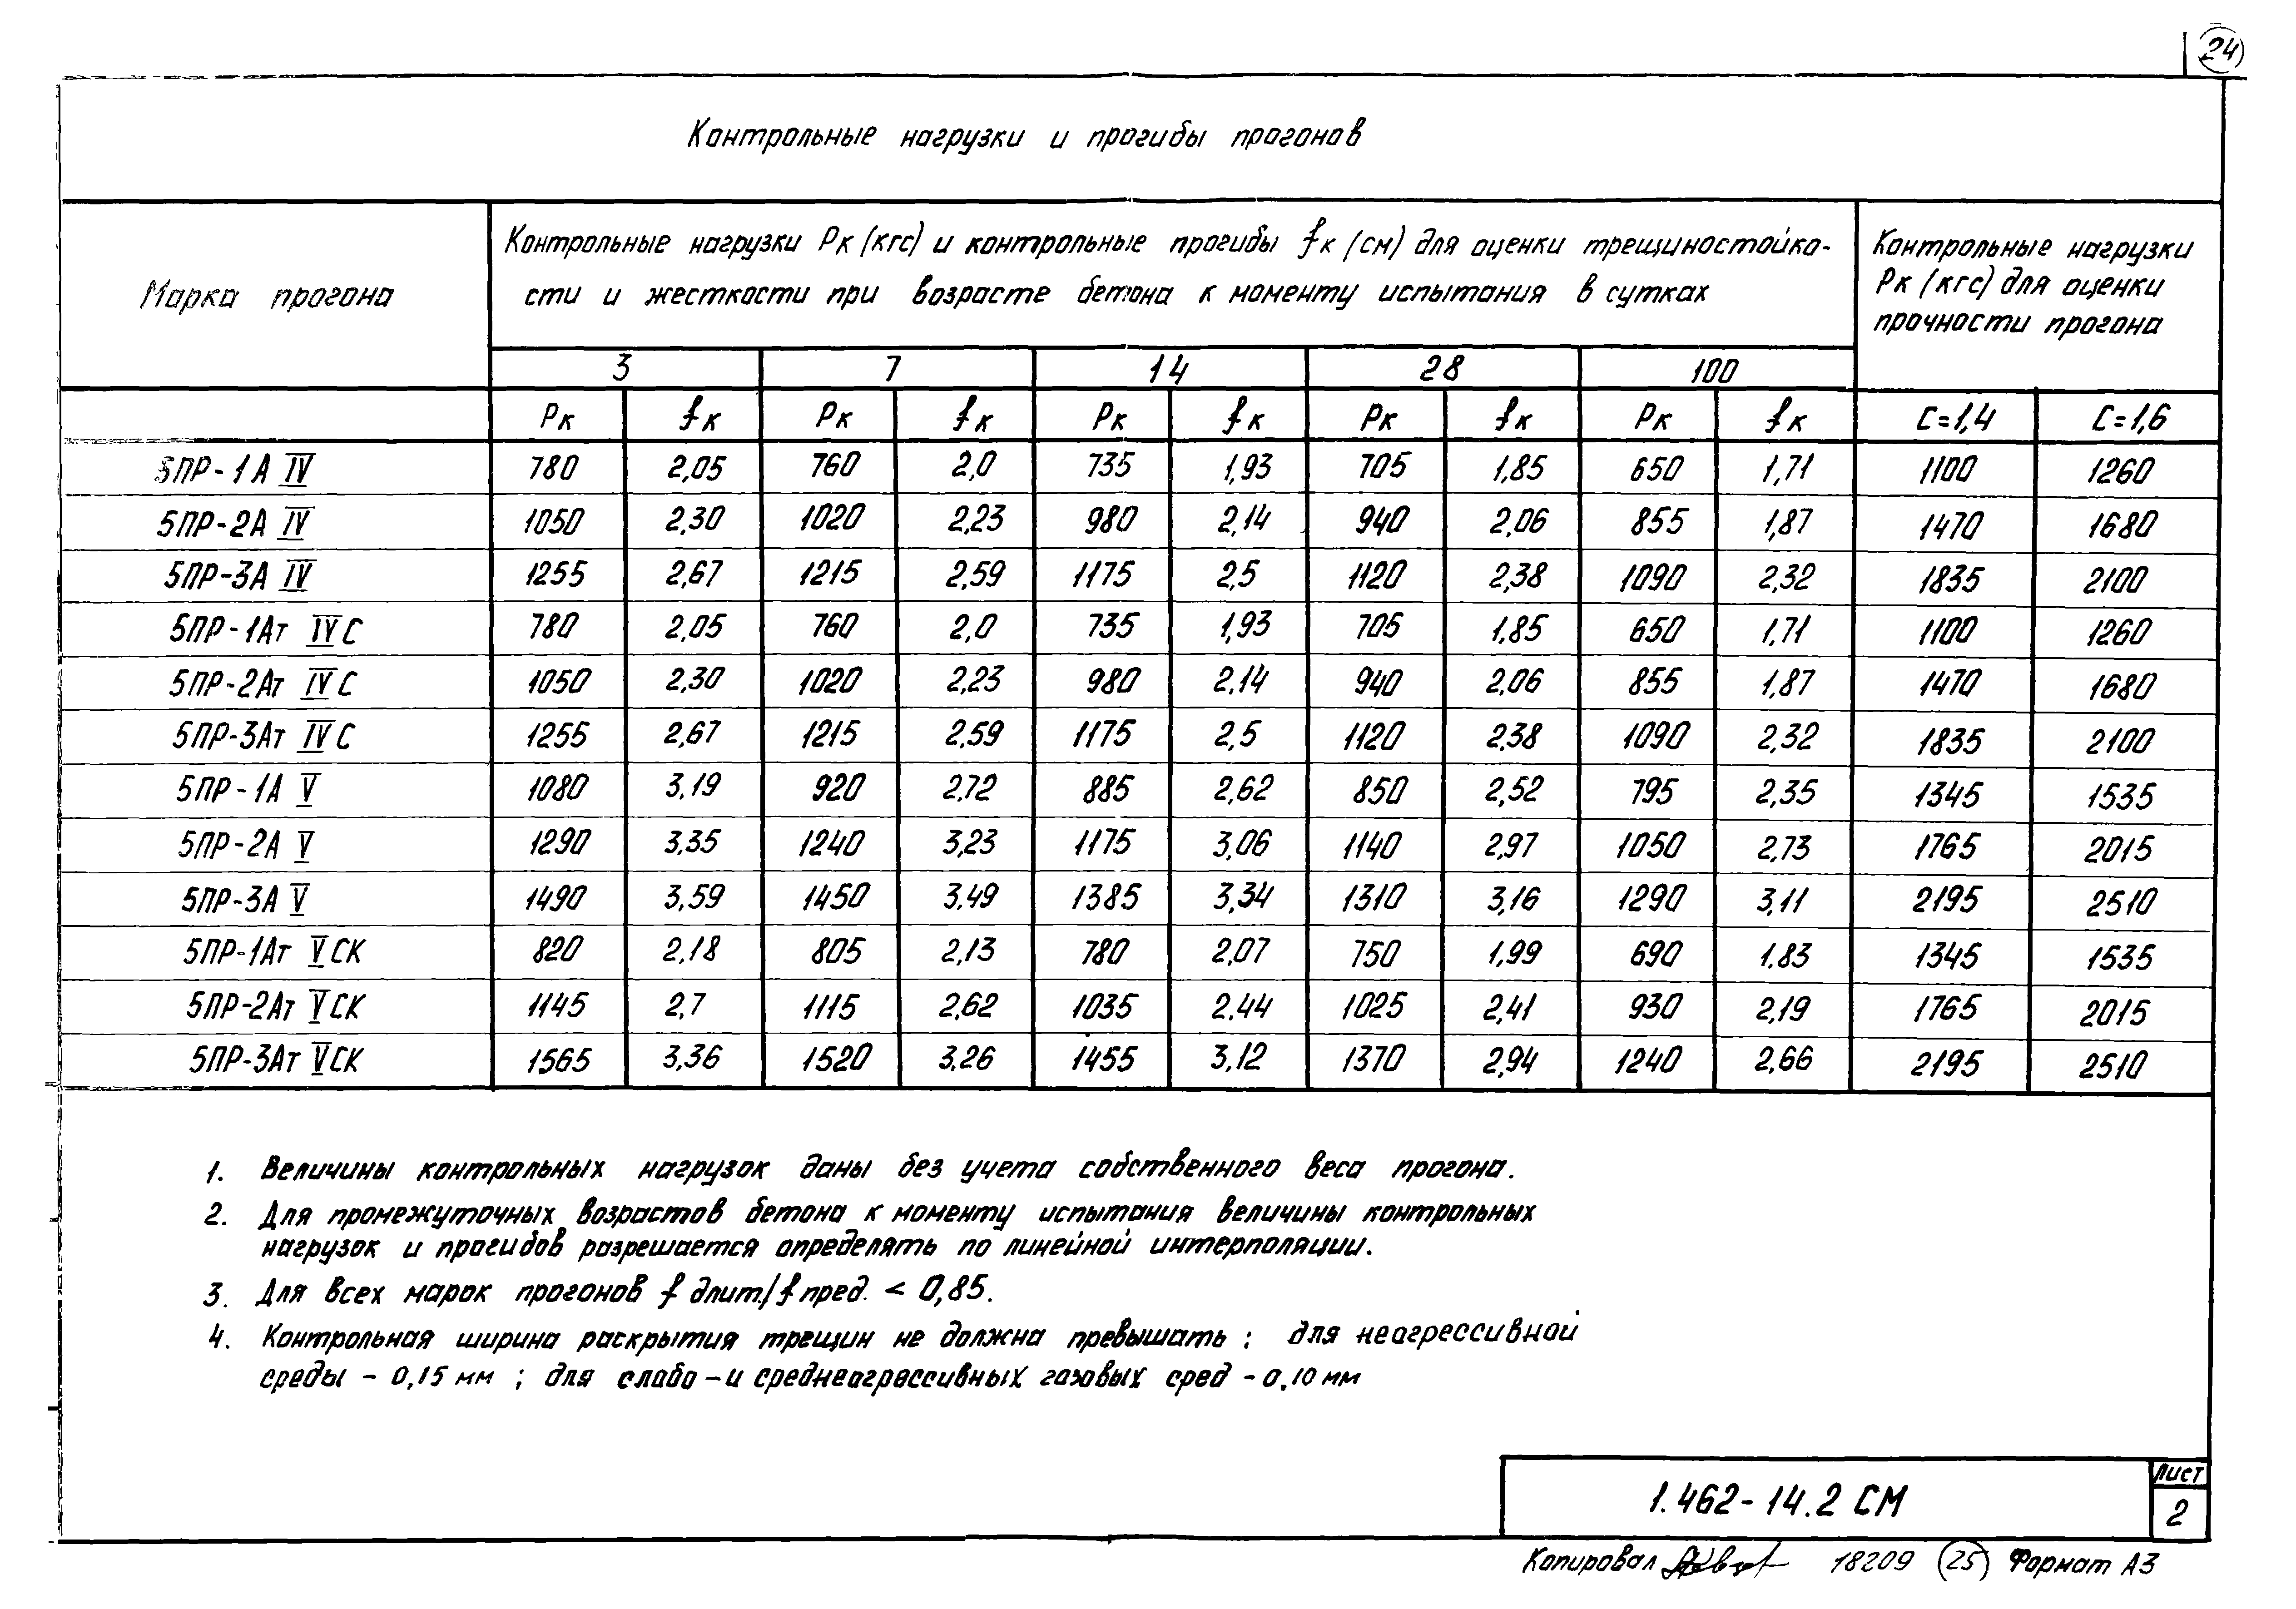 24
Контрольные нагрузки и прогибы прогонов
Марка прогона
Контрольные нагрузки Рк (кгс) и контрольные прогибы fк (см) для оценки трещиностойко-
сти и жесткости при возрасте бетона к моменту испытания в сутках
Контрольные нагрузки
Рк (кгс) для оценки
прочности прогона
3 7 14 28 100
Рк fк Рк fк Рк fк Рк fк Рк fк С=1,4 С=1,6
5ПР-1А IV 780 2,05 760 2,0 735 1,93 705 1,85 650 1,71 1100 1260
5ПР-2А IV 1050 2,30 1020 2,23 980 2,14 940 2,06 855 1,87 1470 1680
5ПР-3А IV 1255 2,67 1215 2,59 1175 2,5 1120 2,38 1090 2,32 1835 2100
5ПР-1Ат IVС 780 2,05 760 2,0 735 1,93 705 1,85 650 1,71 1100 1260
5ПР-2Ат IVС 1050 2,30 1020 2,23 980 2,14 940 2,06 855 1,87 1470 1680
5ПР-3Ат IVС 1255 2,67 1215 2,59 1175 2,5 1120 2,38 1090 2,32 1835 2100
5ПР-1А V 1080 3,19 920 2,72 885 2,62 850 2,52 795 2,35 1345 1535
5ПР-2А V 1290 3,35 1240 3,23 1175 3,06 1140 2,97 1050 2,73 1765 2015
5ПР-3А V 1490 3,59 1450 3,49 1385 3,34 1310 3,16 1290 3,11 2195 2510
5ПР-1Ат VСК 820 2,18 805 2,13 780 2,07 750 1,99 690 1,83 1345 1535
5ПР-2Ат VСК 1145 2,7 1115 2,62 1035 2,44 1025 2,41 930 2,19 1765 2015
5ПР-3Ат VСК 1565 3,36 1520 3,26 1455 3,12 1370 2,94 1240 2,66 2195 2510
1. Величины контрольных нагрузок даны без учета собственного веса прогона.
2. Для промежуточных возрастов бетона к моменту испытания величины контрольных
нагрузок и прогибов разрешается определять по линейной интерполяции.
3. Для всех марок прогонов f длит./f пред. < 0,85.
4. Контрольная ширина раскрытия трещин не должна превышать: для неагрессивной
среды - 0,15 мм; для слабо- и среднеагрессивных газовых сред - 0,10 мм
1.462-14.2 СМ
Лист
2
Копировал 18209 25 Формат А3